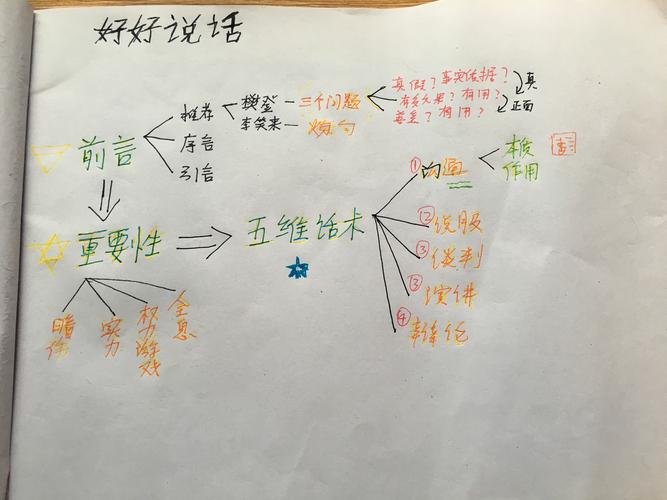 好好说话
推荐
序言
引言
樊登
李笑来
三个问题
真假？事实依据？
有多大用？有用？
真
正面
前言
重要性
五维话术
①沟通
本质
作用
②说服
③谈判
③演讲
④辩论
实力
权力游戏
全息